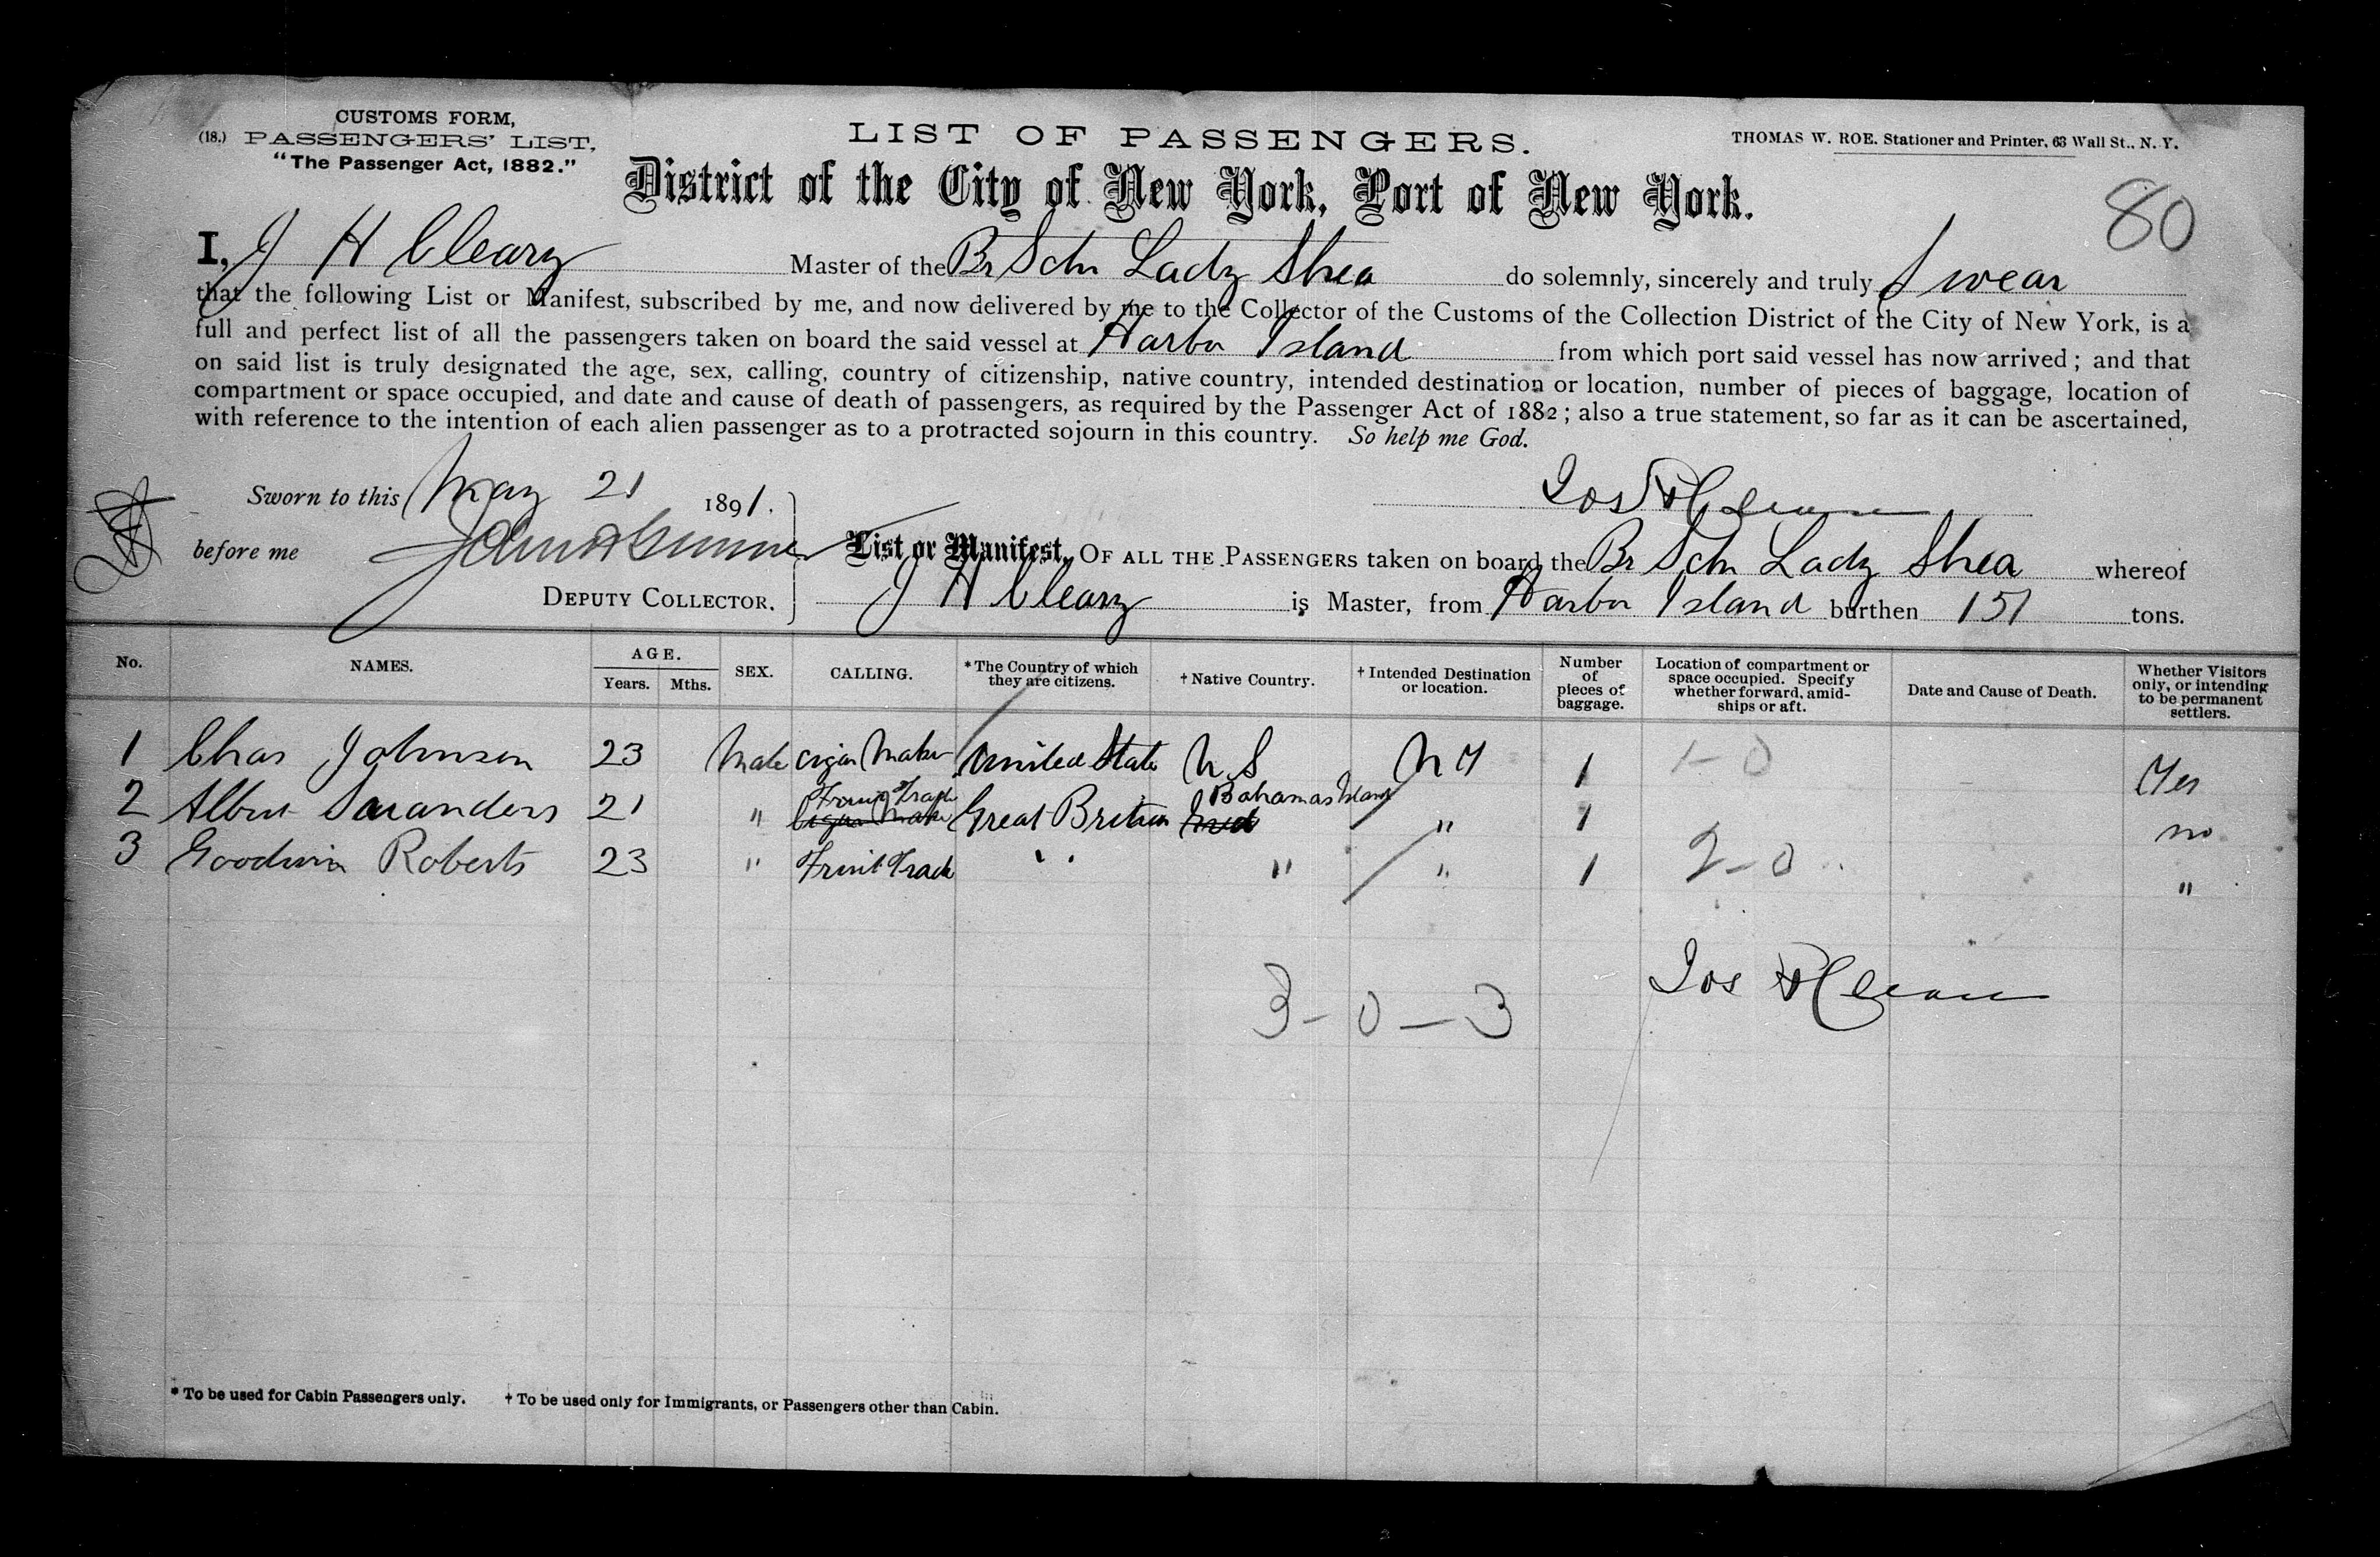 CUSTOMS FORM,
(18.) PASSENGERS' LIST,
"The Passenger Act, 1882."
LIST OF PASSENGERS.
THOMAS W. ROE. Stationer and Printer, 63 Wall St., N. Y.
District of the City of New York, Port of New York.
80
I, J H Cleary Master of the Br Schr Lady Shea do solemnly, sincerely and truly Swear
that the following List or Manifest, subscribed by me, and now delivered by me to the Collector of the Customs of the Collection District of the City of New York, is a
full and perfect list of all the passengers taken on board the said vessel at Harbor Island from which port said vessel has now arrived; and that
on said list is truly designated the age, sex, calling, country of citizenship, native country, intended destination or location, number of pieces of baggage, location of
compartment or space occupied, and date and cause of death of passengers, as required by the Passenger Act of 1882; also a true statement, so far as it can be ascertained,
with reference to the intention of each alien passenger as to a protracted sojourn in this country. So help me God.
Sworn to this May 21 1891.
Jos H Cleary
before me
DEPUTY COLLECTOR.
List or Manifest, OF ALL THE PASSENGERS taken on board the Br Schr Lady Shea whereof
J H Cleary is Master, from Harbor Island burthen 151 tons.
No. NAMES. AGE. Years. Mths. SEX. CALLING. * The Country of which they are citizens. † Native Country. † Intended Destination or location. Number of pieces of baggage. Location of compartment or space occupied. Specify whether forward, amidships or aft. Date and Cause of Death. Whether Visitors only, or intending to be permanent settlers.
1 Chas Johnson 23 Male Cigar Maker United State U S N Y 1 1-0 Yes
2 Albert Saunders 21 " Cigar Maker Fruit Trade Great Britain Bahamas Island " 1 no
3 Goodwin Roberts 23 " Fruit Trade " " " 1 2-0 "
Jos H Cleary
3-0-3
* To be used for Cabin Passengers only. † To be used only for Immigrants, or Passengers other than Cabin.